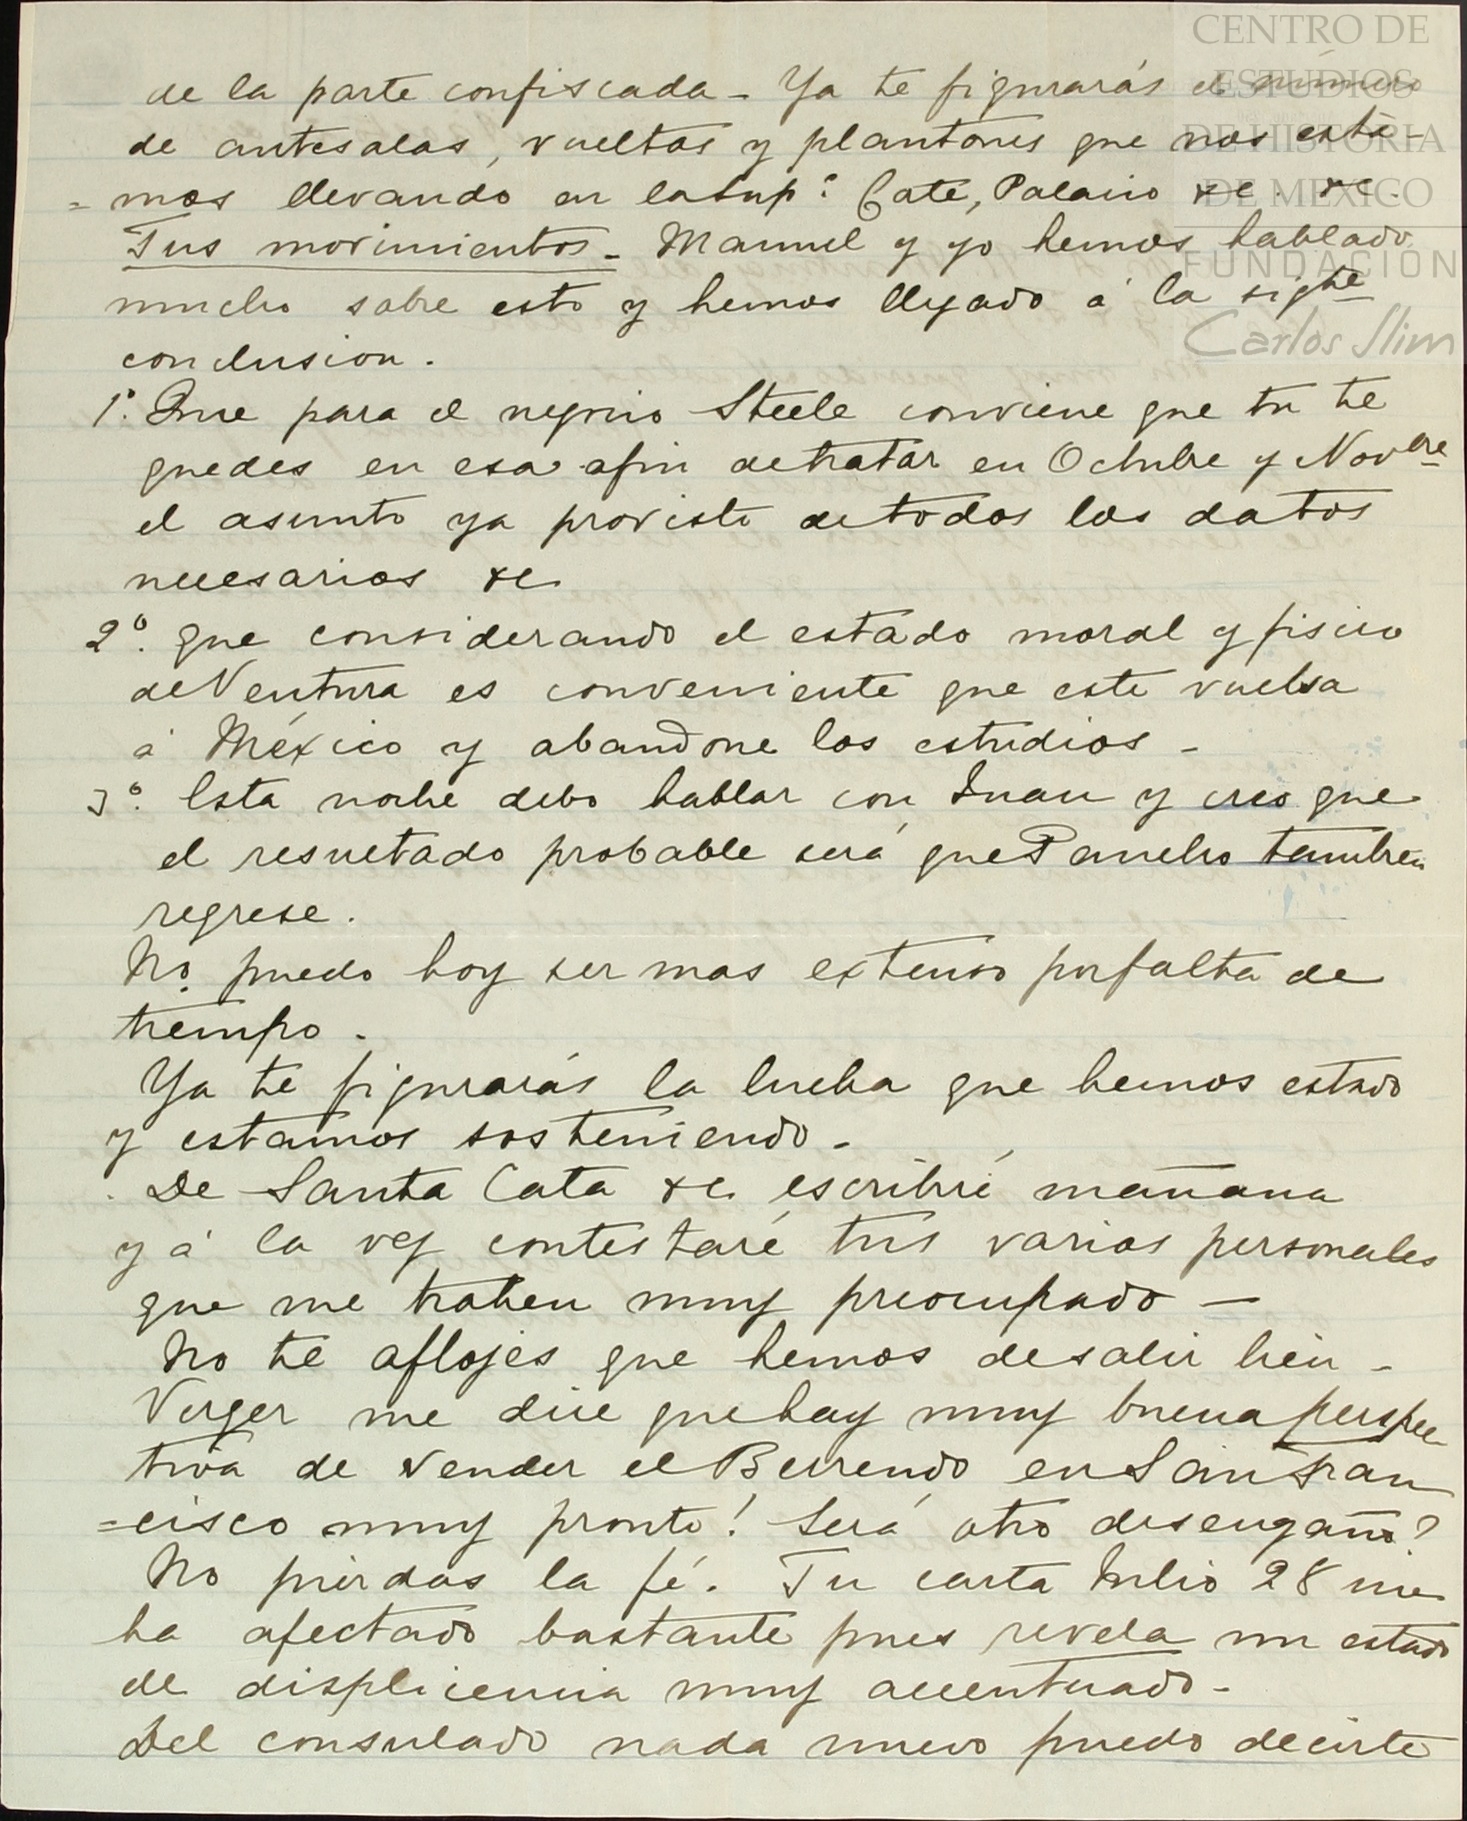 CENTRO DE
ESTUDIOS
DE HISTORIA
DE MEXICO
FUNDACION
Carlos Slim
de la parte confiscada - Ya te figurarás el número
de antesalas, vueltas y plantones que nos esta-
=mos llevando en la Sup.ª Corte, Palacio &c. &c.
Tus movimientos - Manuel y yo hemos hablado
mucho sobre esto y hemos llegado á la sigte
conclusion.
1.º Que para el negocio Steele conviene que tu te
quedes en esa afin de tratar en Octubre y Novbre
el asunto ya provisto de todos los datos
necesarios &c
2.º que considerando el estado moral y fisico
de Ventura es conveniente que este vuelva
á México y abandone los estudios -
3.º Esta noche debo hablar con Juan y creo que
el resultado probable será que Pancho tambien
regrese.
No puedo hoy ser mas extenso por falta de
tiempo.
Ya te figurarás la lucha que hemos estado
y estamos sosteniendo -
De Santa Cata &c escribiré mañana
y á la vez contestaré tus varias personales
que me trahen muy preocupado -
No te aflojes que hemos de salir bien -
Verger me dice que hay muy buena perspec
tiva de vender el Berrendo en San Fran
=cisco muy pronto! Será otro desengaño?
No pierdas la fé. Tu carta Julio 28 me
ha afectado bastante pues revela un estado
de displicencia muy accentuado -
Del consulado nada nuevo puedo decirte